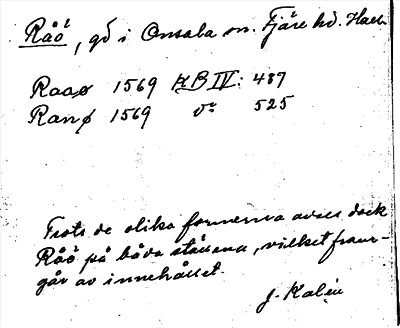 Råö, gd i Onsala sn. Fjäre hd. Hall.
Raaø 1569 KB IV: 487
Ranø 1569 do 525
Trots de olika formerna avses dock
Råö på båda ställena, vilket fram-
går av innehållet.
J. Kalén